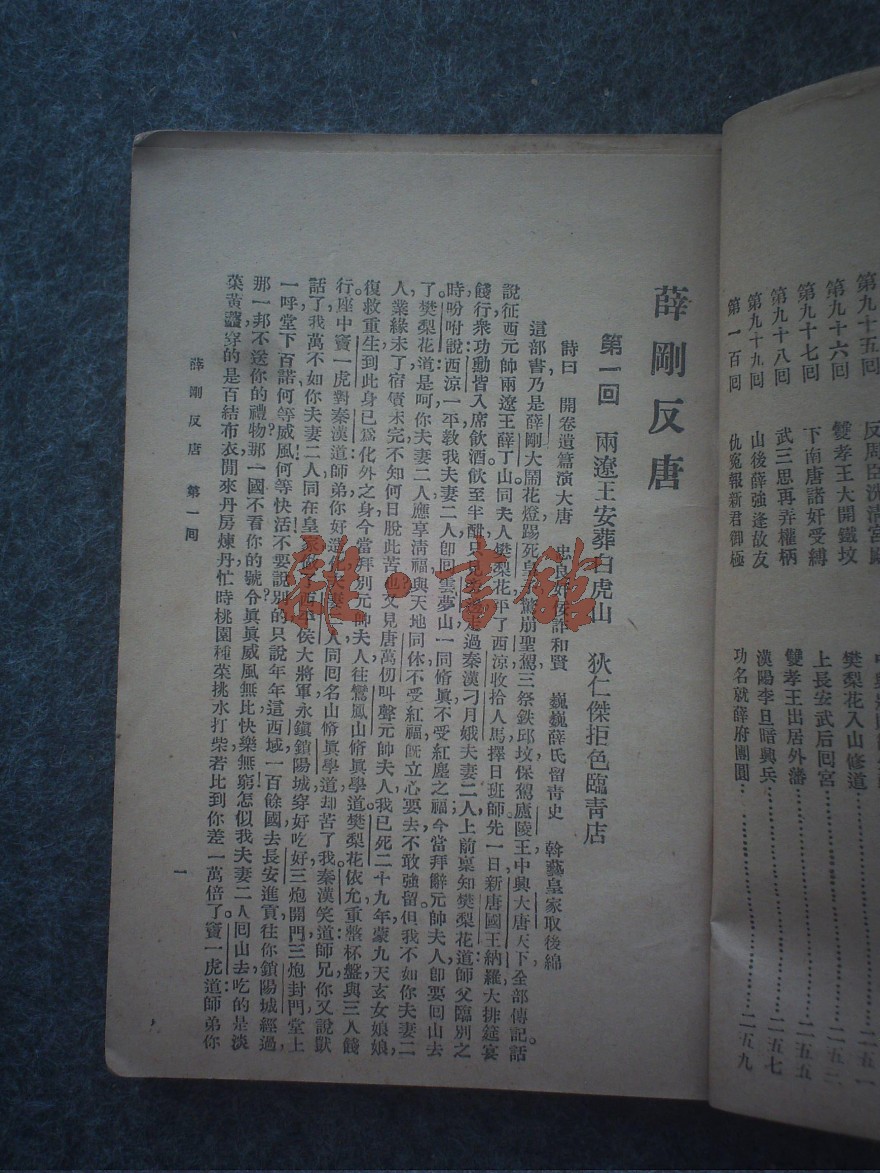 第九十五回 反周臣洗清宮殿
第九十六回 雙孝王大開鐵坟 樊梨花入山修道……二五一
第九十七回 下南唐諸奸受縛 上長安武后回宮……二五二
第九十八回 武三思再弄權柄 雙孝王出居外藩……二五五
第九十九回 山後薛強逢故友 漢陽李旦暗興兵……二五七
第一百回 仇冤報新君御極 功名就薛府團圓……二五九
薛剛反唐
第一回 兩遼王安葬白虎山 狄仁傑拒色臨青店
詩曰 開卷遺篇演大唐 忠良奸佞詐和賢 巍巍薛氏留青史 斡藝皇家取後綿
這部書乃是薛剛大鬧花燈踢死皇 驚崩聖駕三祭鉄邱坟保駕廬陵王中興大唐天下全部傳記話
說征西元帥兩遼王薛丁山同夫人樊梨花平了西涼收拾人馬擇日班師先一日新唐國王納羅大排筵宴
餞行衆功勳皆入席飲酒飲至半酣只見 過秦漢刁月娥夫妻二人上前稟知樊梨花道師父臨別之
時吩咐說西涼一平教我夫妻二人卽回雲夢山一同修眞不受紅塵之福今當拜辭元帥夫人卽要回山去
了樊梨花道是呵你夫妻二人應享淸福與天地同休不受紅福旣立心要去不敢強留但我不如你夫妻二
人業緣未了宿債未完不知何日脫此苦也又見唐萬仞叫聲元帥夫人我已死二十九年蒙九天玄女娘娘
復救重生到此身已爲化外之身今當拜別元帥夫人往鸞鳳山修眞學道樊梨花依允重整杯盤與三人餞
行座中竇一虎對秦漢道師弟你好造化夫妻二人同回名山修眞學道却苦了我秦漢笑道師兄你又說獃
話了我萬不如你夫妻二人同在皇家 西平侯大將軍永鎭鎖陽城穿好吃好三炮開門三炮封門堂上
一呼堂下百諾何等威風何等快活不要說別的只說年年這西域一百餘國去長安進貢往你鎖陽城經過
那一邦不送你的禮物那一國不看你的號令眞眞威風無比快樂無窮怎似我夫妻二人回山去吃的是淡
菜黄虀穿的是百結布衣閒來丹房煉丹忙時桃園種菜挑水打柴若比到你差一萬倍了竇一虎道師弟你
薛剛反唐 第一回
一
雜·書館